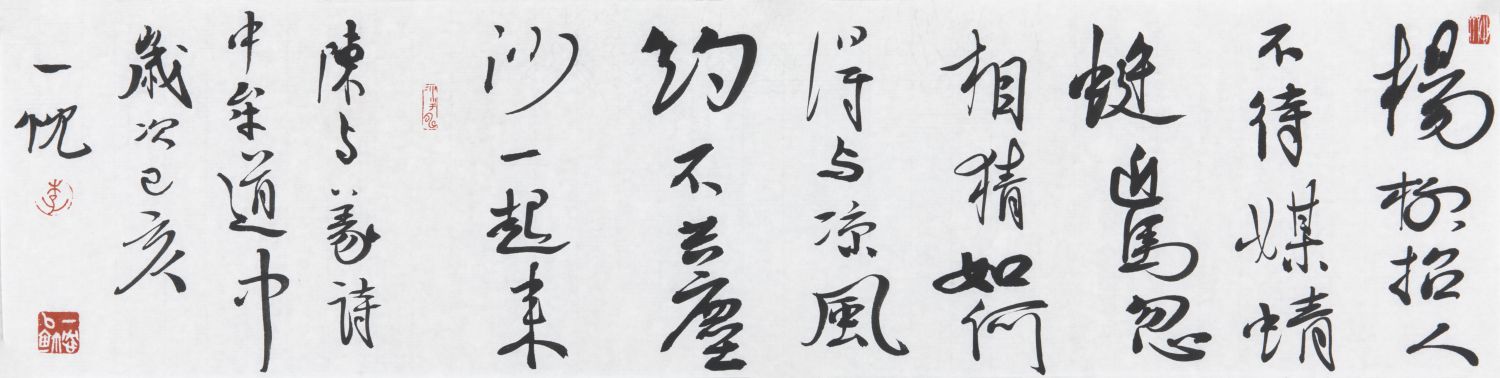 楊柳招人
不待媒蜻
蜓近馬忽
相猜如何
得与凉風
約不共塵
沙一起来
陳与義詩
中牟道中
歲次己亥
一忱
李